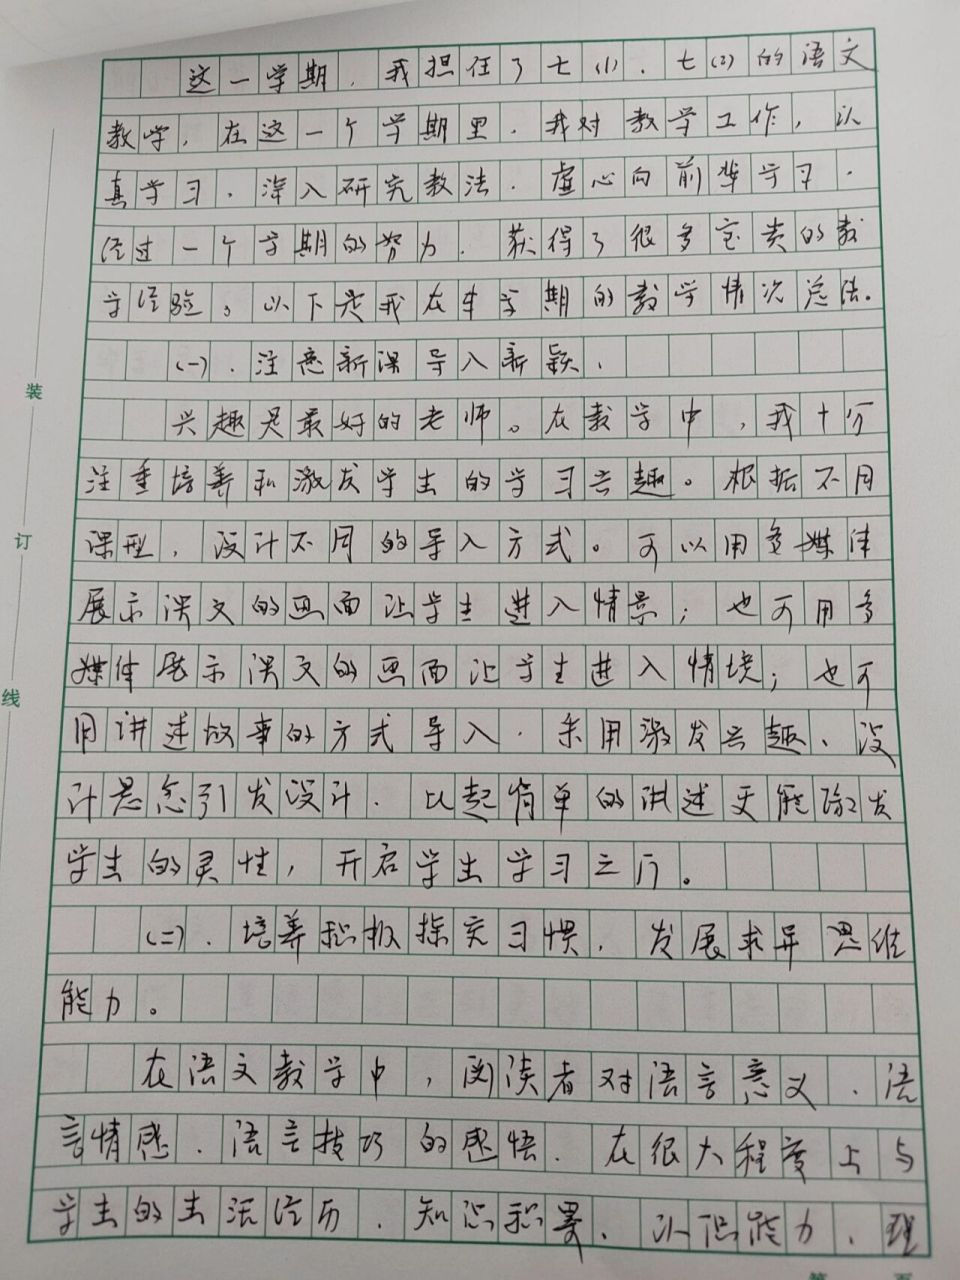 这一学期，我担任了七(1)、七(2)的语文
教学，在这一个学期里，我对教学工作，认
真学习，深入研究教法，虚心向前辈学习，
经过一个学期的努力，获得了很多宝贵的教
学经验。以下是我在本学期的教学情况总结。
(一)、注意新课导入新颖，
兴趣是最好的老师。在教学中，我十分
注重培养和激发学生的学习兴趣。根据不同
课型，设计不同的导入方式。可以用多媒体
展示课文的画面让学生进入情景；也可用多
媒体展示课文的画面让学生进入情境；也可
用讲述故事的方式导入，采用激发兴趣、设
计悬念引发设计，比起简单的讲述更能激发
学生的灵性，开启学生学习之门。
(二)、培养积极探究习惯，发展求异思维
能力。
在语文教学中，阅读者对语言意义、语
言情感、语言技巧的感悟，在很大程度上与
学生的生活经历、知识积累、认识能力、理
装
订
线